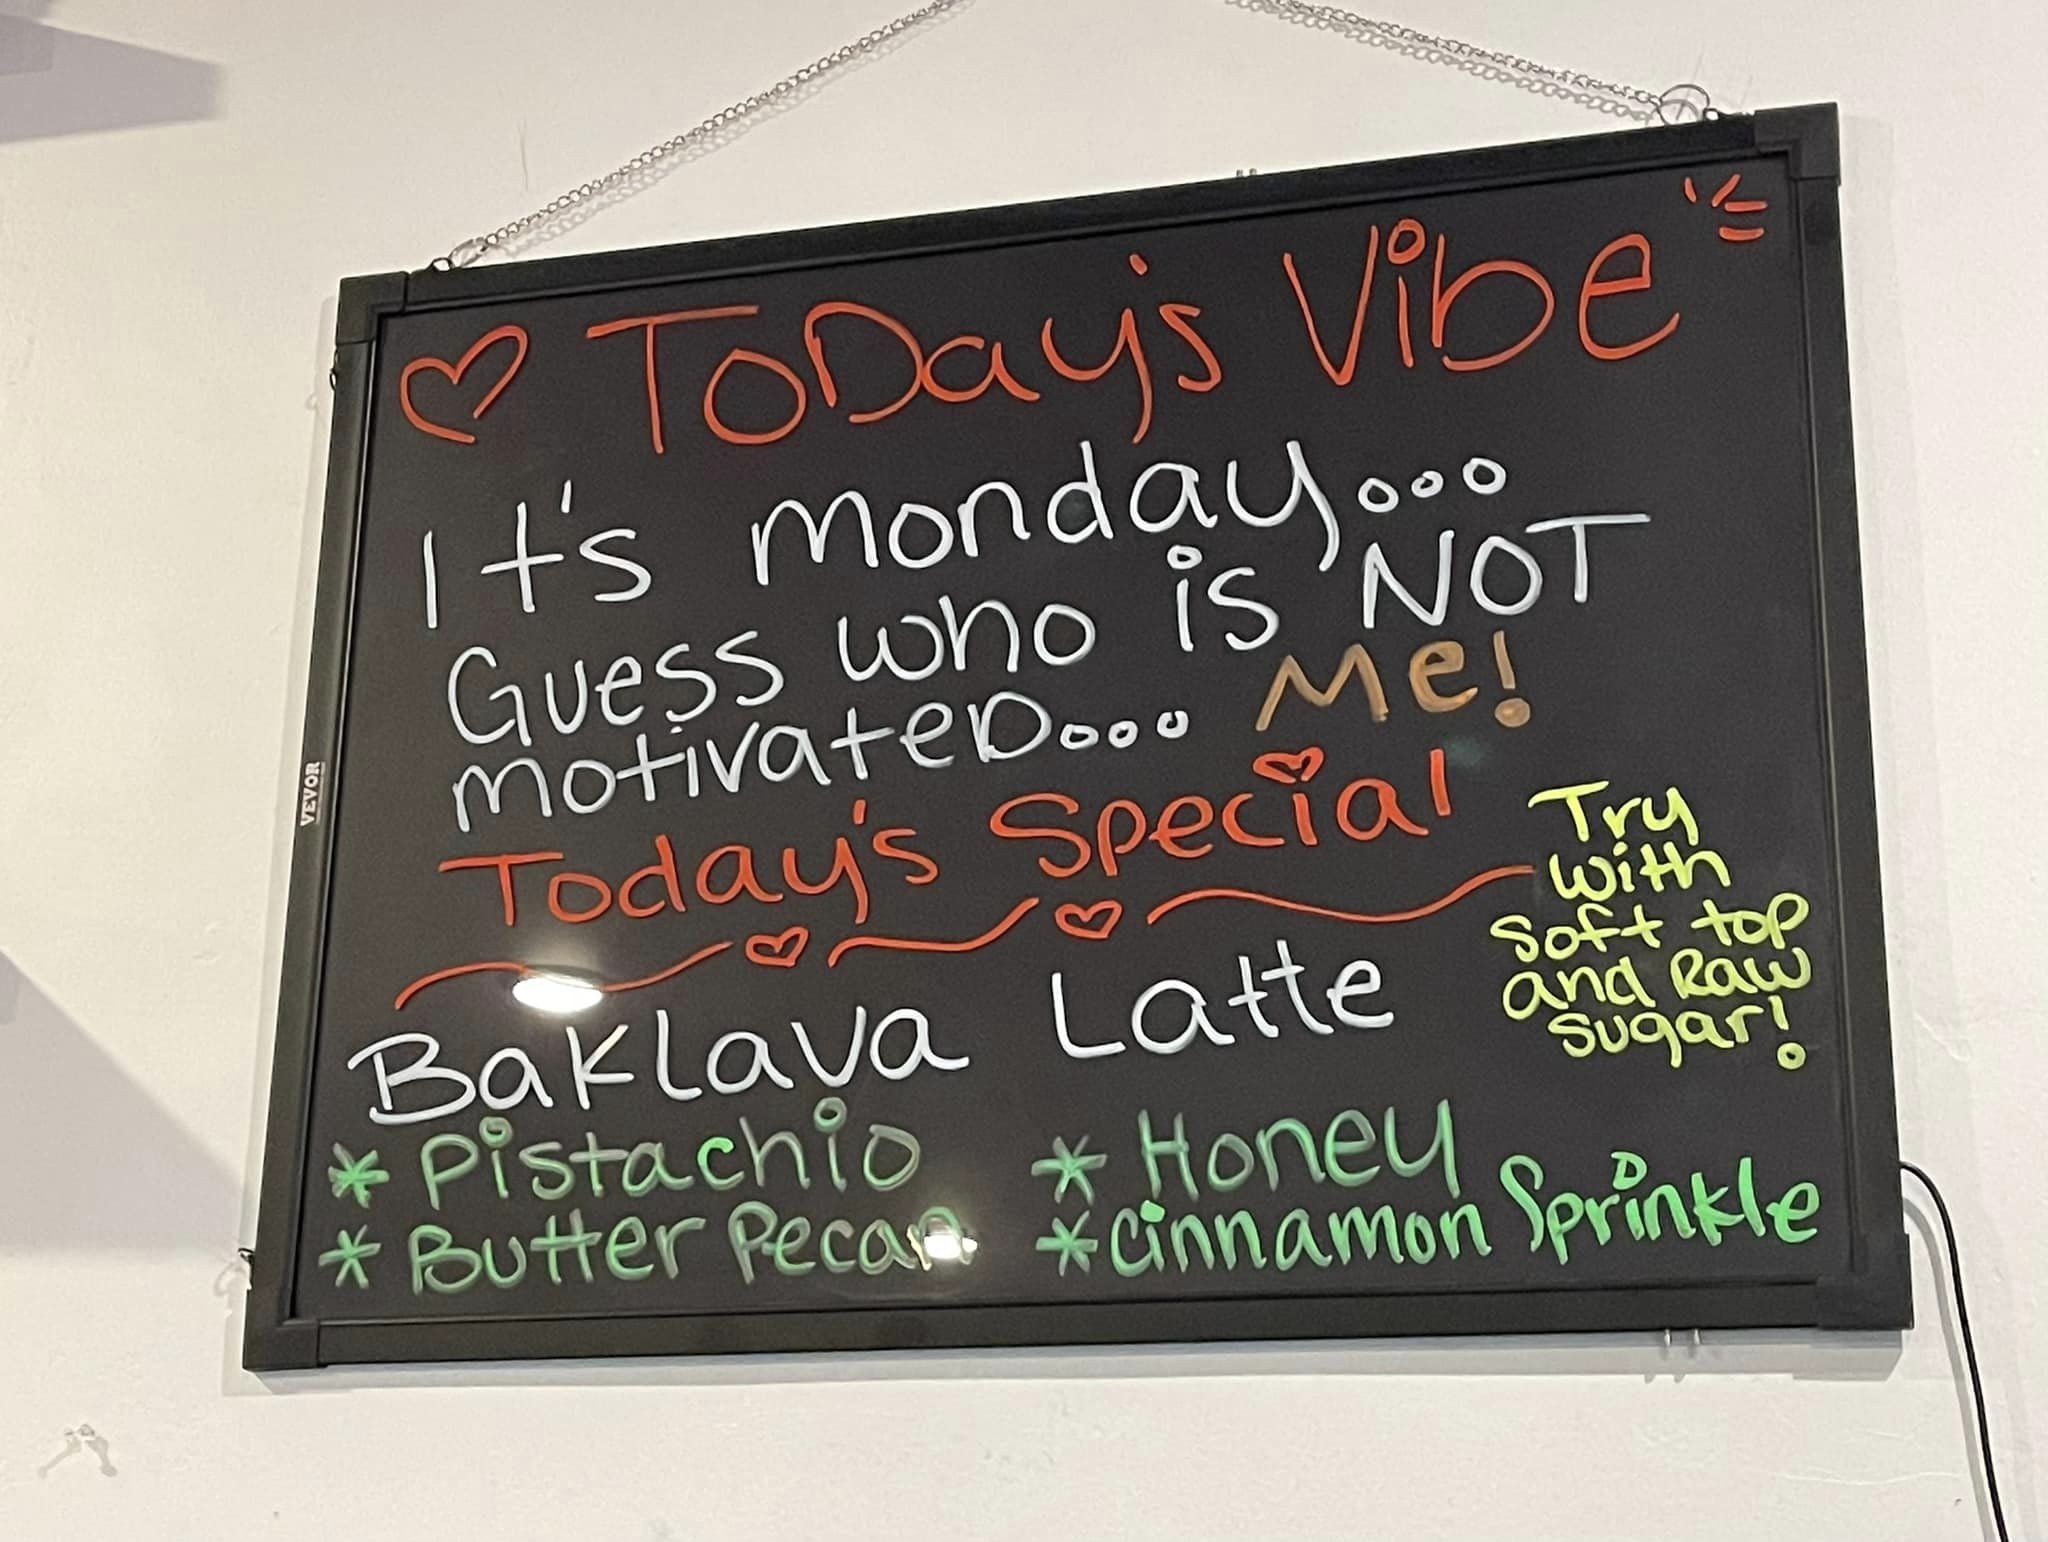 ToDay's Vibe
It's monday...
Guess who is NOT
motivateD... Me!
Today's Special
Try
with
soft top
and Raw
sugar!
Baklava Latte
* Pistachio
* Honey
* Butter Pecan
* Cinnamon Sprinkle
VEVOR